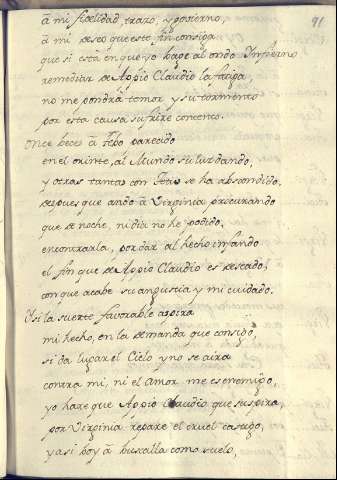 91
à mi fidelidad, trazo, y govierno,
à mi deseo que este fin consiga
que si està en que yo baxe al ondo Infierno
remediar de Appio Claudio la fatiga,
no me pondrà temor y su tormento
por esta causa sufrire contento.
Once beces à Febo parecido
en el oriente al Mundo su luz dando,
y otras tantas con Tetis se ha abscondido,
despues que ando à Virginia procurando
que de noche, ni dia no he podido,
encontrarla, por dar al hecho infando
el fin que de Appio Claudio es deseado,
con que acabe su angustia y mi cuidado.
Y si la suerte favorable aspira
mi hecho, en la demanda que consigo,
si da lugar el Cielo y no se aira
contra mi, ni el Amor me es enemigo,
yo hare que Appio Claudio que suspira,
por Virginia repare el cruel castigo,
y asi boy à buscalla como suelo,